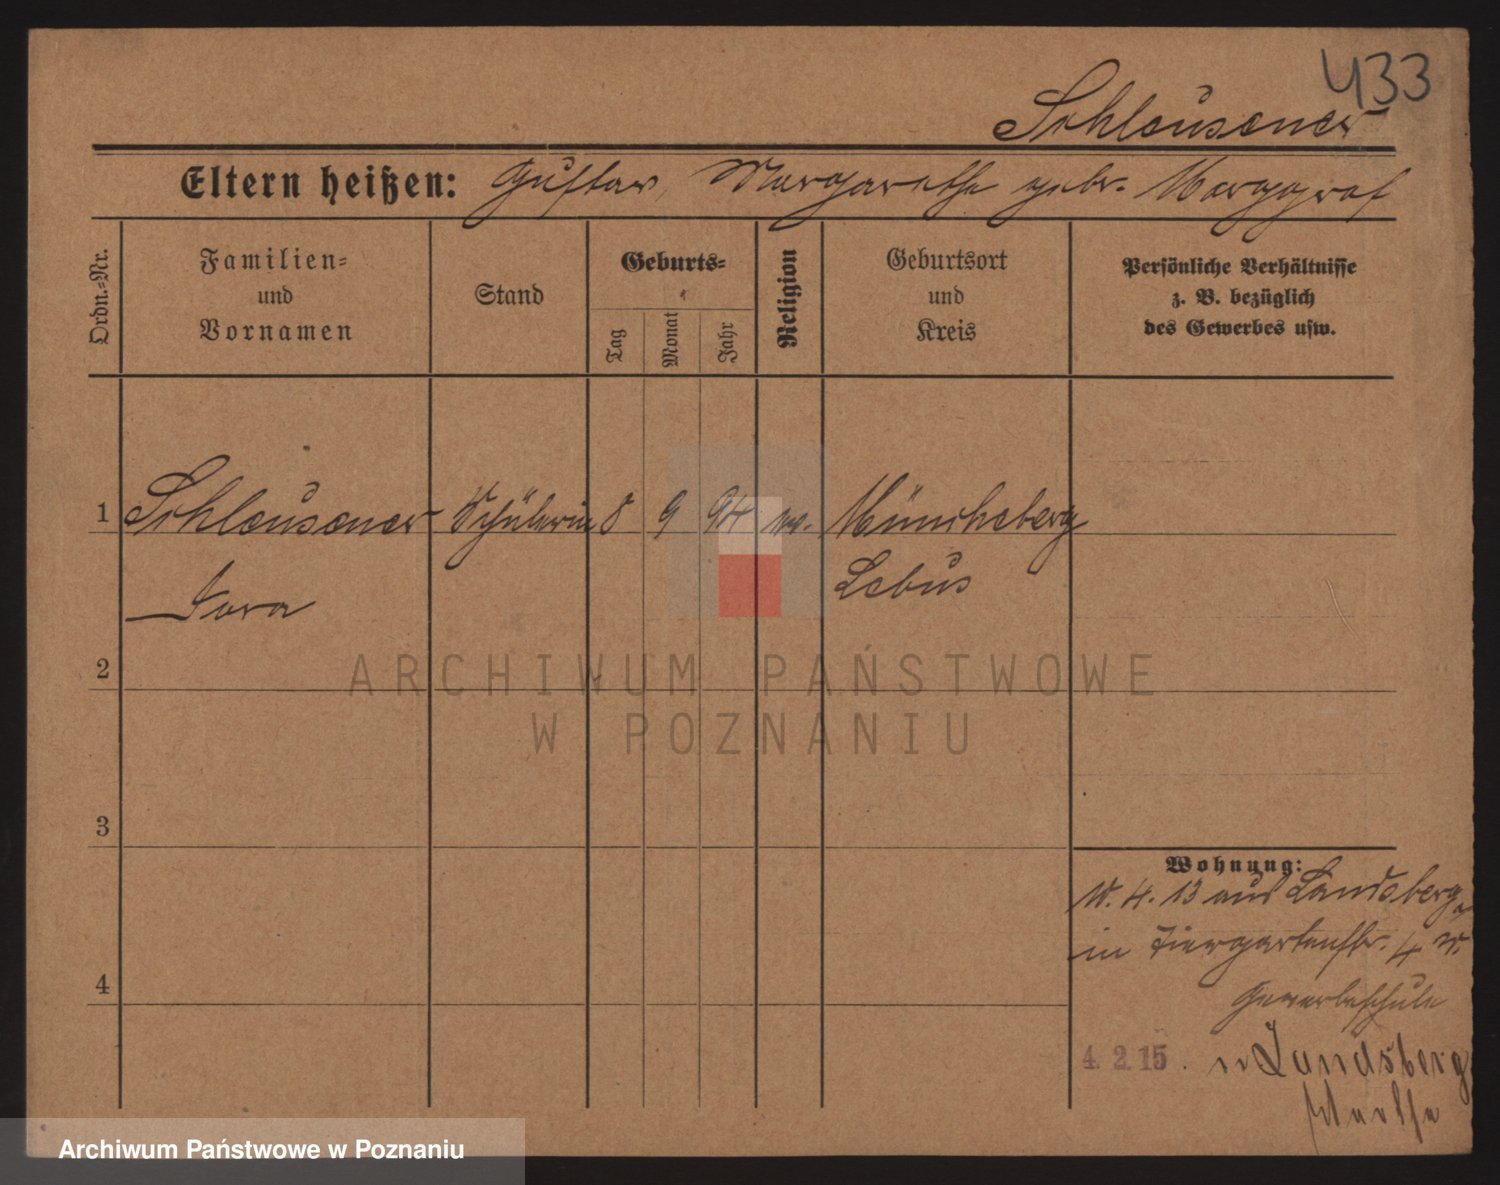 433
Schleusener
Eltern heißen: Gustav, Margarethe geb. Marggraf
Ordn.-Nr.
Familien-
und
Vornamen
Stand
Geburts-
Tag
Monat
Jahr
Religion
Geburtsort
und
Kreis
Persönliche Verhältnisse
z. B. bezüglich
des Gewerbes usw.
1 Schleusener Schülerin 8 9 94 ev. Müncheberg
Lebus
Dora
2
3
4
Wohnung:
4. 13 aus Landsberg
in Tiergartenstr. 4
Gewerbeschule
4. 2. 15. n Landsberg
Warthe
ARCHIWUM PAŃSTWOWE
W POZNANIU
Archiwum Państwowe w Poznaniu